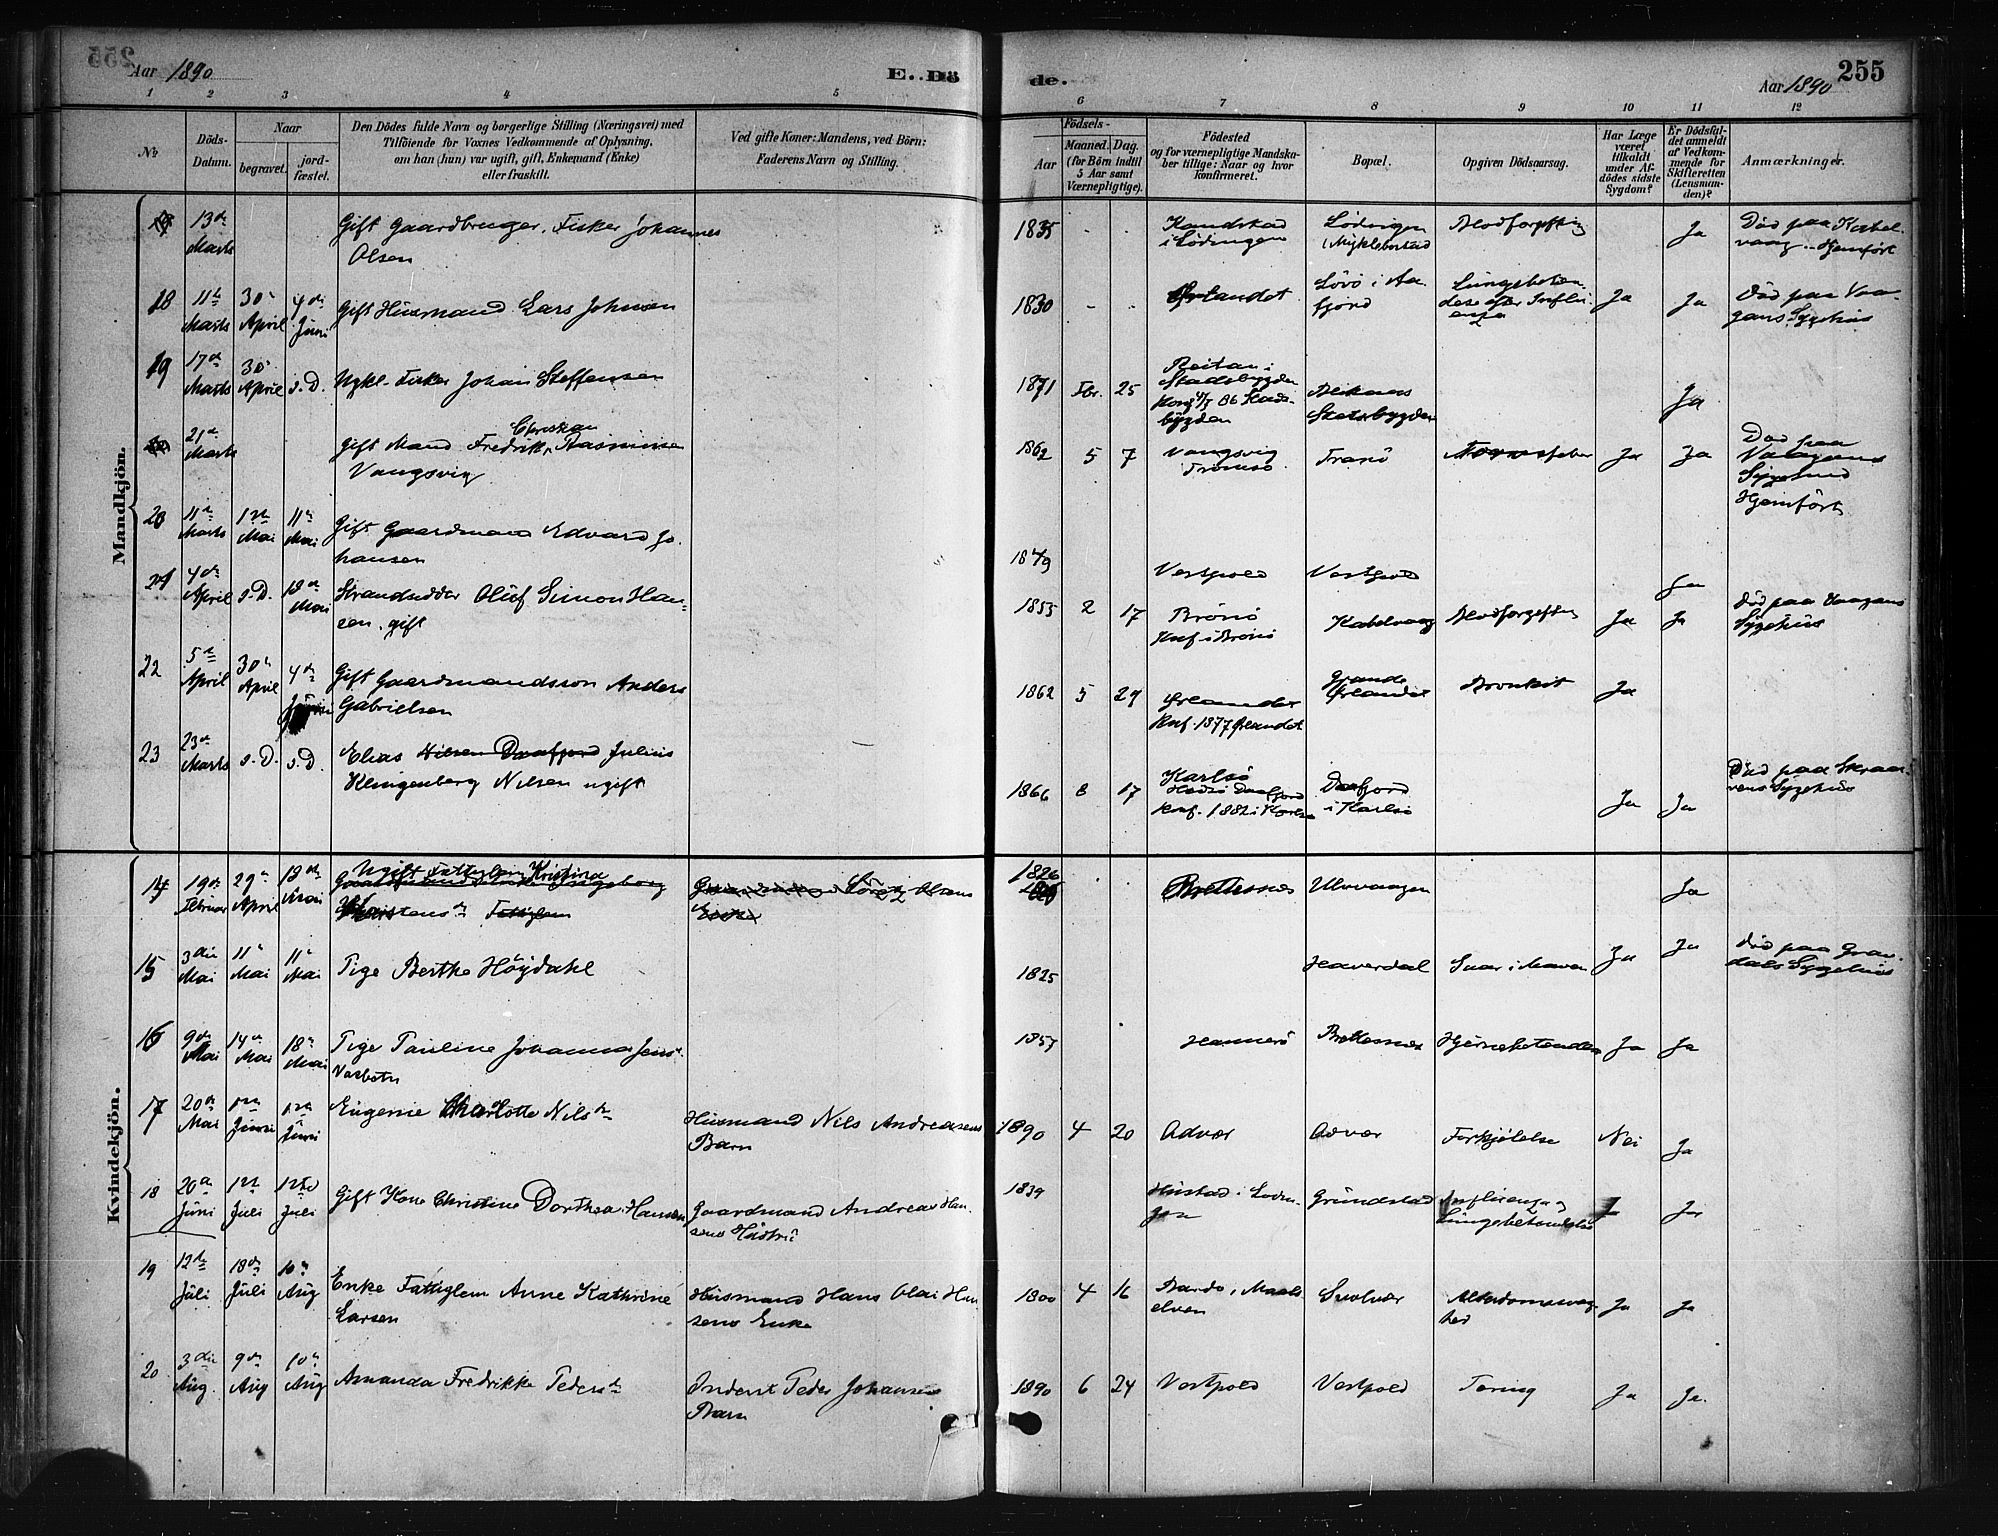 255
Aar 1890
E. Dö
de.
Aar 1890
255
1 2 3 4 5
6 7 8 9 10 11 12
No
Döds-
Datum.
Naar
begravet.
jord-
fæstet.
Den Dödes fulde Navn og borgerlige Stilling (Næringsvei) med
Tilföiende for Voxnes Vedkommende af Oplysning,
om han (hun) var ugift, gift, Enkemand (Enke)
eller fraskilt.
Ved gifte Koner: Mandens, ved Börn:
Faderens Navn og Stilling.
Födsels-
Aar
Maaned. Dag.
(for Börn indtil
5 Aar samt
Værnepligtige).
Födested
og for værnepligtige Mandska-
ber tillige: Naar og hvor
konfirmeret.
Bopæl.
Opgiven Dödsaarsag.
Har Læge
været
tilkaldt
under Af-
dödes sidste
Sygdom?
Er Dödsfal-
det anmeldt
af Vedkom-
mende for
Skifteretten
(Lensman-
den)?
Anmærkninger.
Mandkjön.
13de Marts
Gift Gaardbruger, Fisker Johannes
Olsen
1835 - -
Kandstad
i Lödingen
Lödingen
Blodforgiftnig
Ja
Död paa Kabel-
vaag. Hjemfört
18 11te Marts 30te April 4de Juni
Gift Husmand Lars Johnsen
1830 - -
Ørlandet
Lövö i Aa-
fjord
Lungebeten-
delse efter Influ-
enza
Ja Ja
Död paa Vaa-
gans Sygehus
19 17de Marts 30te April s. D.
Ugkl. Fisker Johan Steffensen
1871 Fbr. 25
Reitan i
Stadsbygden
Konf. 86 Stads-
bygden
Stadsbygden
Ja
21de Marts
Christian
Gift Mand Fredrik Rasmussen
Vangsvig
1862 5 7
Vangsvig
Tromsö
Tranö
Ja Ja
Död paa
Vaagans
Sygehus
Hjemfört
20 11te Marts 1ste Mai 11te Mai
Gift Gaardmand Edvard Jo-
hansen
1849
Vestpold
Vestpold
Ja
21 4de April s. D. 18de Mai
Strandsidder Oluf Simon Han-
sen. gift
1853 2 17
Brönö
Knf. i Brönö
Kabelvaag
Blodforgiften
Ja Ja
Död paa Vaagans
Sygehus
22 5te April 30te April 4de Juni
Gift Gaardmandssön Anders
Gabrielsen
1862 5 29
Ørlandet
Knf. 1877 Ørlandet
Grande
Ørlandet
Bronkit
Ja
23 23de Marts s. D. s. D.
Elias Nilsen Daafjord Julius
Klingenberg Nilsen ugift
1866 8 17
Karlsö
Daafjord
Knf. 1882 i Karlsö
Daafjord
i Karlsö
Ja Ja
Död paa Skraa-
vens Sygehus
Kvindekjön.
14 19de Februar 29de April 18de Mai
Ugift Fattiglem Kristina
Ingeborg
Fattiglem
Olsens
Enke
1826
Brettesnæs
Ulvvaagen
Ja
15 3die Mai 11te Mai 11te Mai
Pige Berthe Höjdahl
1825
Haverdal
Saar i Maven
Ja Ja
Död paa Grav-
dals Sygehus
16 9de Mai 14de Mai 18de Mai
Pige Pauline Johanna Jens.
Vasbotn
1857
Hammerö
Brettesnæs
Hjernebetendelse
Ja Ja
17 20de Mai 1ste Juni 1ste Juni
Eugenie Charlotte Nilsdtr
Husmand Nils Andreasens
Barn
1890 4 20
Advær
Advær
Forkjölelse
Nei Ja
18 20de Juni 1ste Juli 1ste Juli
Gift Kone Christine Dorthea Hansen
Gaardmand Andreas Han-
sens Hustru
1839
Grundstad
Influenza og
Lungebetendelse
Ja
19 12te Juli 18de Juli 10de Aug
Enke Fattiglem Anne Kathrine
Larsen
Husmand Hans Olai Han-
sens Enke
1800 4 16
Bardo i Maals-
elven
Svolvær
Alderdomssvag-
hed
Ja Ja
20 3die Aug. 9de Aug 10de Aug
Amanda Fredrikke Pedersdtr
Inderst Peder Johansens
Barn
1890 6 24
Vestpold
Vestpold
Tæring
Ja Ja.